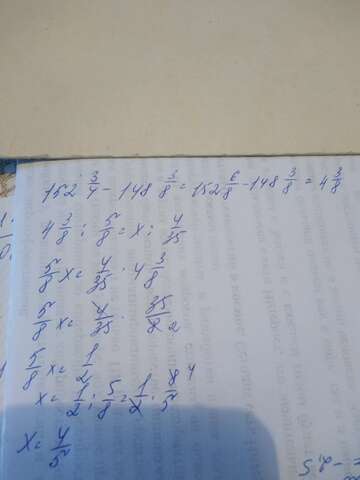 152 3/4 - 148 3/8 = 152 6/8 - 148 3/8 = 4 3/8
4 3/8 : 5/8 = x : 4/35
5/8 x = 4/35 · 4 3/8
5/8 x = 4/35 · 35/8 2
5/8 x = 1/2
x = 1/2 : 5/8 = 1/2 · 8/5 4
x = 4/5